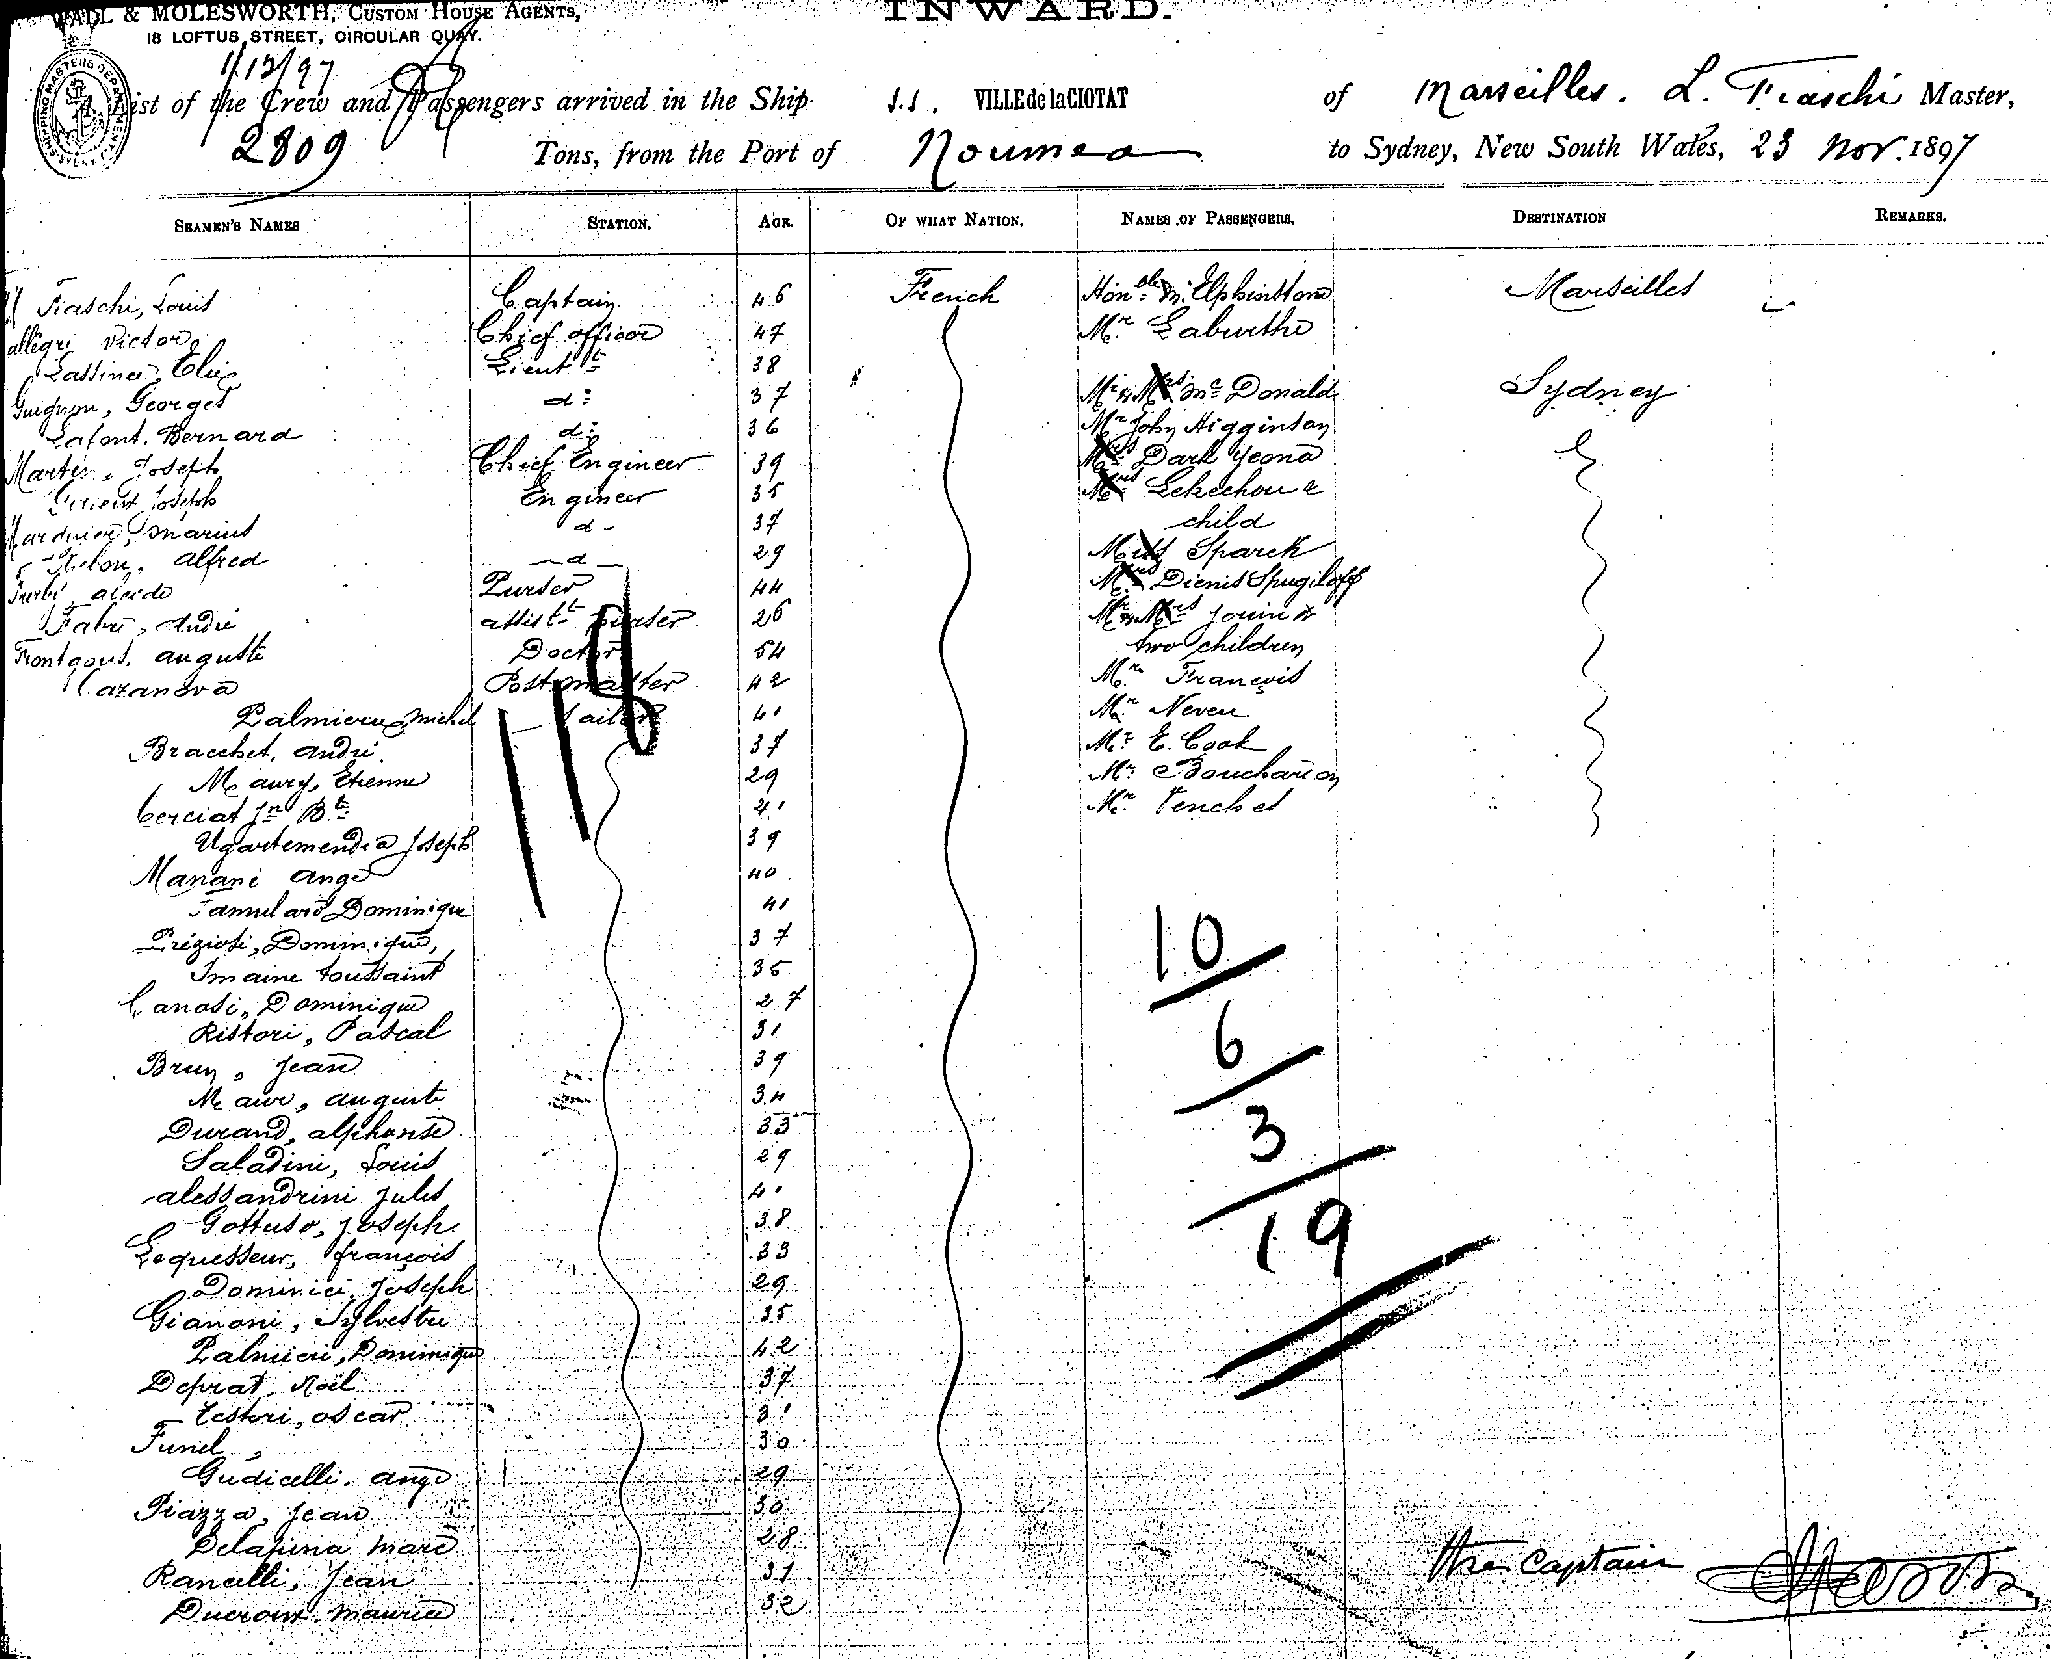 WADL & MOLESWORTH, CUSTOM HOUSE AGENTS,
18 LOFTUS STREET, CIRCULAR QUAY.
INWARD.
1/12/97
A List of the Crew and Passengers arrived in the Ship S.S. VILLE de la CIOTAT of Marseilles. L. Fiaschi Master,
2809 Tons, from the Port of Noumea to Sydney, New South Wales, 23 Nov. 1897
SEAMEN'S NAMES STATION. AGE. OF WHAT NATION. NAMES OF PASSENGERS. DESTINATION REMARKS.
Fiaschi, Louis Captain 46 French Hon.ble Mr. Elphinstone Marseilles
Allegri Victor Chief officer 47 Mr. Laburthe
Elie Lieut.t 38
Guignon, Georges do 37 Mr & Mrs McDonald Sydney
Lafont. Bernard do 36 Mr John Higginson
Martin, Joseph Chief Engineer 39 Mrs Dark Yeona
Joseph Engineer 35 Mrs Lekechou &
Marius d- 37 child
Alfred d 29 Miss Sparck
Purser 44 Mrs Dienis Spugiloff
Fabre, André assist.t Purser 26 Mr & Mrs Jouin &
Auguste Doctor 54 two children
Cazanova Postmaster 42 Mr. François
Palmieri, Michel Sailor 41 Mr. Neveu
Bracchet, André. 37 Mr. E. Cook
Maury, Etienne 29 Mr. Boucharion
Cerciat Jn Bte 41 Mr. Venchet
Ugartemendia Joseph 39
Manani Ange 40
Famularo Dominique 41
Préziosi, Dominique, 37
Imaine Toussaint 35
Canasi, Dominique 27
Ristori, Pascal 31
Brun, Jean 39
Maur, Auguste 34
Durand, Alphonse 33
Saladini, Louis 29
Alessandrini Jules 41
Gottuso, Joseph 38
Lequesseur, François 33
Dominici, Joseph 29
Gianoni, Sylvestre 35
Palmieri, Dominique 42
Deprat, Noël 37
Testori, Oscar 31
Funel, 30
Gudicelli. Ange 29
Piazza, Jean 30
Delapina Marc 28
Rancelli, Jean 31
Ducroux Maurice 32
118
10
6
3
19
The Captain